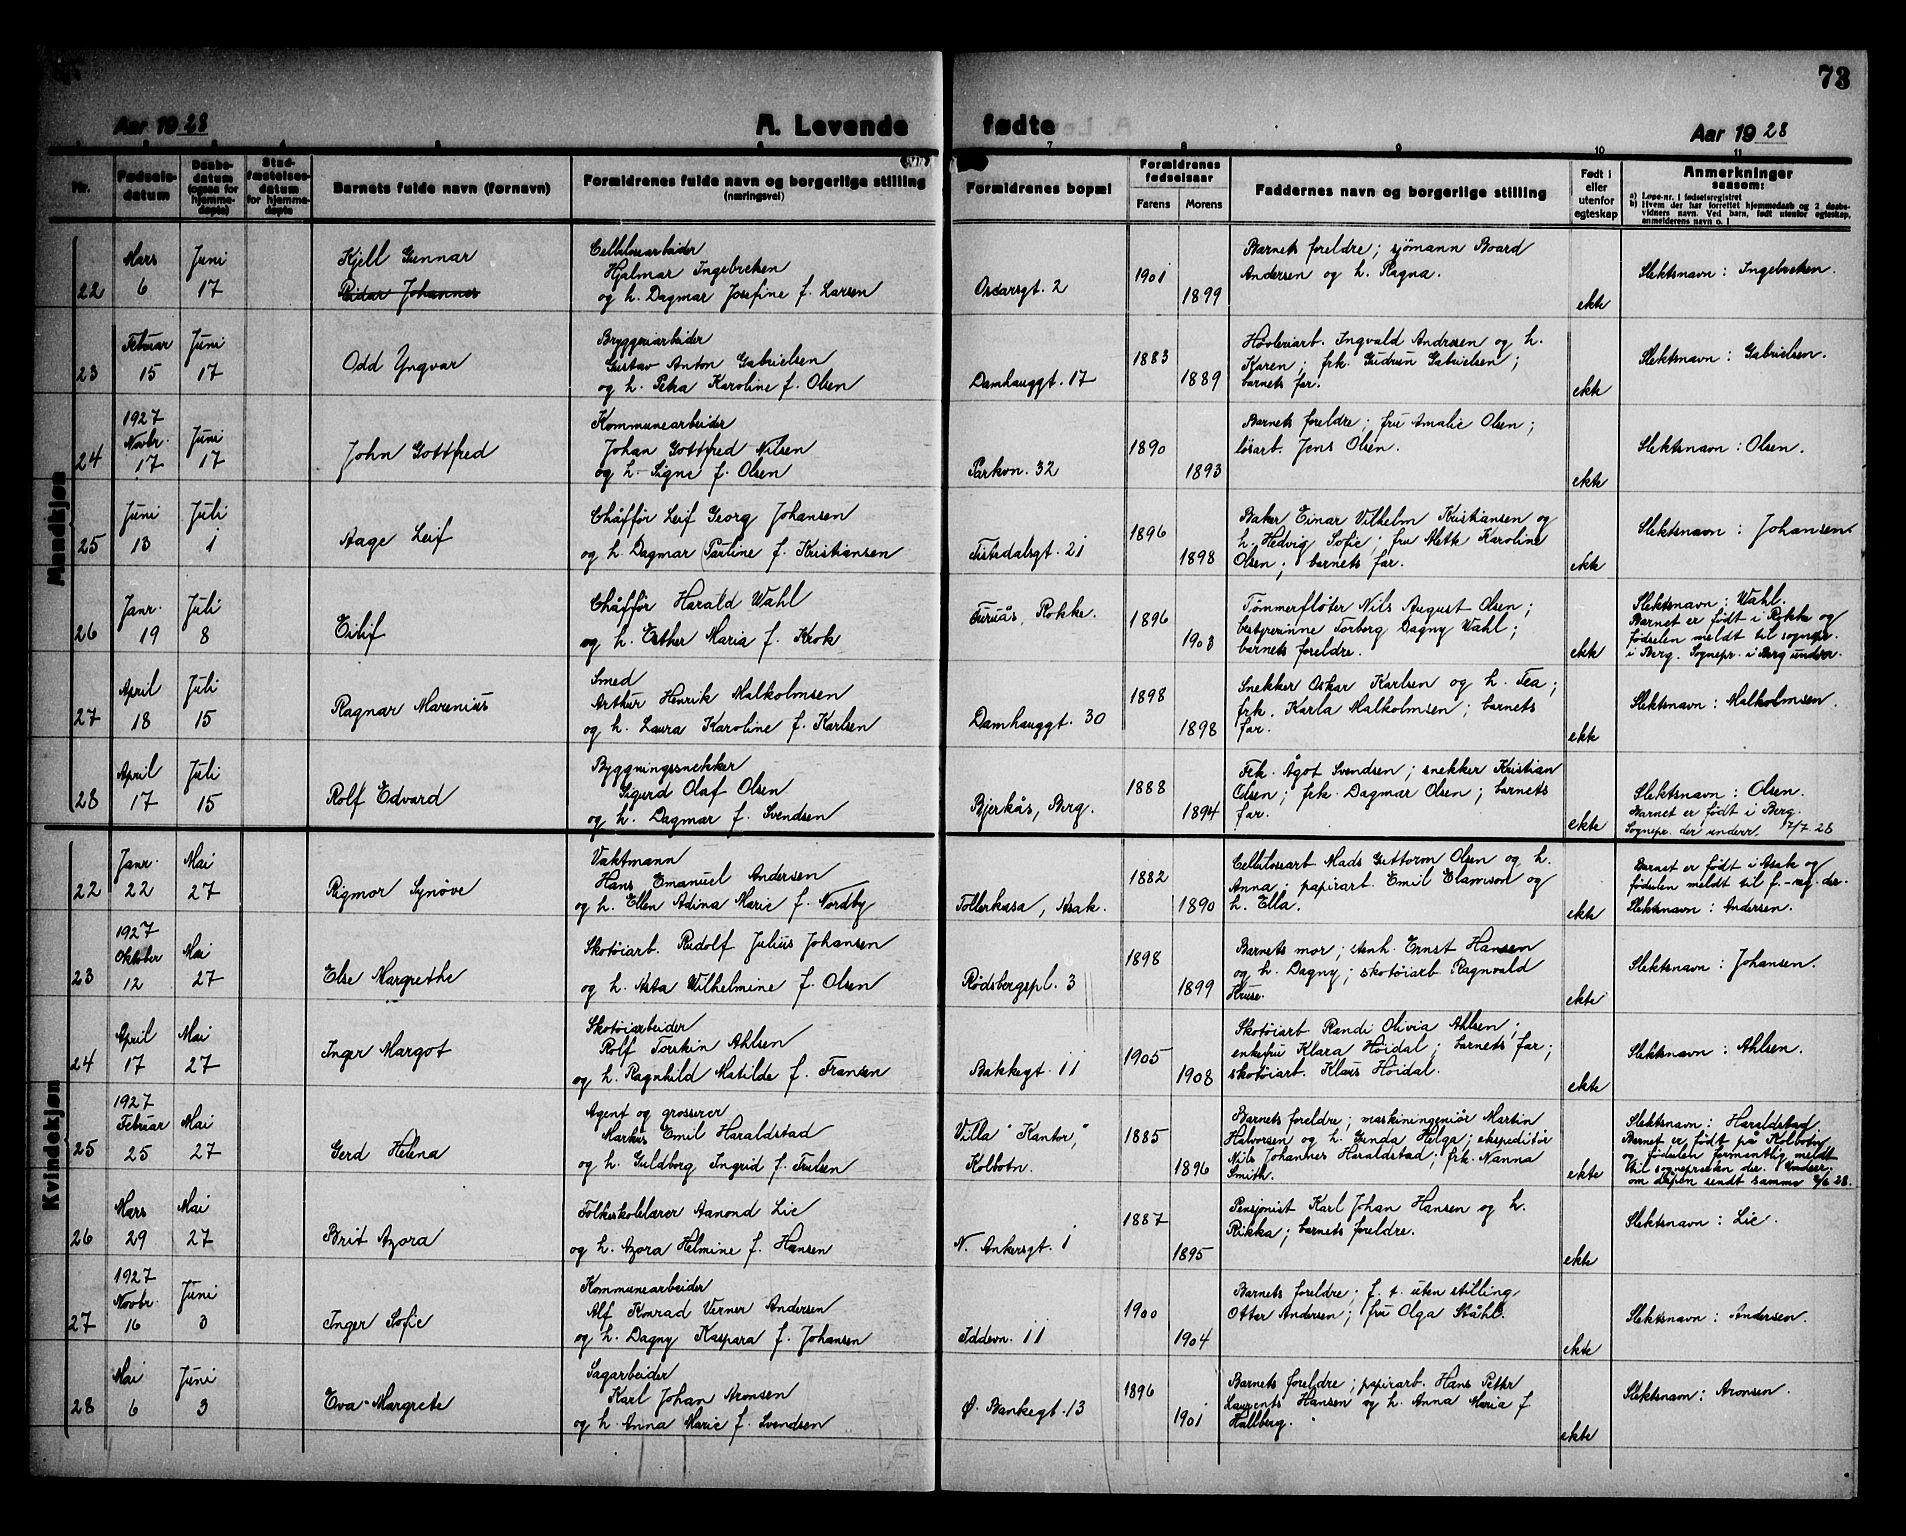 73
Aar 1928
A. Levende
fødte
Aar 1928
Nr.
Fødsels-
datum
Daabs-
datum
(ogsaa for
hjemme-
døpte)
Stad-
fæstelses-
datum
for hjemme-
døpte
Barnets fulde navn (fornavn)
Forældrenes fulde navn og borgerlige stilling
(næringsvei)
7
8
9
10
11
Forældrenes bopæl
Forældrenes
fødselsaar
Farens
Morens
Faddernes navn og borgerlige stilling
Født i
eller
utenfor
egteskap
Anmerkninger
saasom:
a) Løpe-nr. i fødselsregistret
b) Hvem der har forrettet hjemmedaab og 2 daabs-
vidners navn. Ved barn, født utenfor egteskap,
anmelderens navn o. l
Mandkjøn
22
Mars
6
Juni
17
Kjell Gunnar
Reidar Johannes
Cellulosearbeider
Hjalmar Ingebretsen
og h. Dagmar Josefine f. Larsen
Oscarsgt. 2
1901
1899
Barnets foreldre; sjömann Board
Andersen og h. Ragna.
ekte
Slektsnavn: Ingebretsen.
23
Februar
15
Juni
17
Odd Yngvar
Bryggeriarbeider
Gustav Anton Gabrielsen
og h. Petra Karoline f. Olsen
Damhauggt. 17
1883
1889
Høvleriarb. Ingvald Andresen og h.
Karen; frk. Gudrun Gabrielsen;
barnets far.
ekte
Slektsnavn: Gabrielsen.
24
1927
Novbr.
17
Juni
17
John Gottfred
Kommunearbeider
Johan Gottfred Nilsen
og h. Signe f. Olsen
Parkvn. 32
1890
1893
Barnets foreldre; fru Amalie Olsen;
løsarb. Jens Olsen.
ekte
Slektsnavn: Olsen.
25
Juni
13
Juli
1
Aage Leif
Chåffør Leif Georg Johansen
og h. Dagmar Pauline f. Kristiansen
Tistedalsgt. 21
1896
1898
Baker Einar Vilhelm Kristiansen og
h. Hedvig Sofie; fru Alette Karoline
Olsen; barnets far.
ekte
Slektsnavn: Johansen
26
Janr.
19
Juli
8
Eilif
Chåffør Harald Wahl
og h. Esther Maria f. Krok
Furuås, Rokke.
1896
1903
Tømmerfløter Nils August Olsen;
bestyrerinne Torberg Dagny Wahl;
barnets foreldre.
ekte
Slektsnavn: Wahl.
Barnet er født i Rokke og
fødselen meldt til sognepr.
i Berg. Sognepr. i Berg underr.
27
April
18
Juli
15
Ragnar Marenius
Smed
Arthur Henrik Malkolmsen
og h. Laura Karoline f. Karlsen
Damhauggt. 30
1898
1898
Snekker Oskar Karlsen og h. Tea;
frk. Karla Malkolmsen; barnets
far.
ekte
Slektsnavn: Malkolmsen.
28
April
17
Juli
15
Rolf Edvard
Byggningssnekker
Sigurd Olaf Olsen
og h. Dagmar f. Svendsen
Bjerkås, Berg.
1888
1894
Frk. Ågot Svendsen; snekker Kristian
Olsen; frk. Dagmar Olsen; barnets
far.
ekte
Slektsnavn: Olsen.
Barnet er født i Berg.
Sognepr. der underr. 17/7 28
Kvindekjøn
22
Janr.
22
Mai
27
Rigmor Synöve
Vaktmann
Hans Emanuel Andersen
og h. Ellen Adina Marie f. Nordby
Tollerkasa, Asak.
1882
1890
Cellulosearb Mads Guttorm Olsen og h.
Anna; papirarb. Emil Elawson og
h. Ella.
ekte
Barnet er født i Asak og
fødselen meldt til f.-reg. der.
Slektsnavn: Andersen.
23
1927
Oktober
12
Mai
27
Else Margrethe
Skotøiarb. Rudolf Julius Johansen
og h. Asta Wilhelmine f. Olsen
Rødsbergspl. 3
1898
1899
Barnets mor; stenh. Ernst Hansen
og h. Dagny; skotøiarb Ragnvald
Kruse.
ekte
Slektsnavn: Johansen.
24
April
17
Mai
27
Inger Margot
Skotøiarbeider
Rolf Torstein Ahlsen
og h. Ragnhild Matilde f. Fransen
Bakkegt. 11
1905
1908
Skotøiarb Randi Olivia Ahlsen;
enkefru Klara Høidal; barnets far;
skotøiarb. Klaus Høidal.
ekte
Slektsnavn: Ahlsen.
25
1927
Februar
25
Mai
27
Gerd Helena
Agent og grosserer
Markus Emil Haraldstad
og h. Guldborg Ingrid f. Frilsen
Villa "Kantor",
Kolbotn.
1885
1896
Barnets foreldre; maskiningeniör Martin
Halvorsen og h. Gunda Helga; ekspeditör
Nils Johannes Haraldstad; frk. Nanna
Smith.
ekte
Slektsnavn: Haraldstad.
Barnet er født på Kolbotn
og fødselen formentlig meldt
til sognepresten der. Underr.
om dåpen sendt samme 2/6 28.
26
Mars
29
Mai
27
Brit Azora
Folkeskolelærer Aanond Lie
og h. Azora Helmine f. Hansen
N. Ankersgt. 1
1887
1895
Pensjonist Karl Johan Hansen og h.
Rikka; barnets foreldre.
ekte
Slektsnavn: Lie.
27
1927
Novbr.
16
Juni
3
Inger Sofie
Kommunearbeider
Alf Konrad Verner Andersen
og h. Dagny Kaspara f. Johansen
Iddevn. 11
1900
1904
Barnets foreldre; f. t. uten stilling
Otter Andersen; fru Olga Ståhl.
ekte
Slektsnavn: Andersen.
28
Mai
6
Juni
3
Eva Margrete
Sagarbeider
Karl Johan Aronsen
og h. Anna Marie f. Svendsen
Ø. Bankegt. 13
1896
1901
Barnets foreldre; papirarb. Hans Petter
Laurents Hansen og h. Anna Maria f
Hallberg.
ekte
Slektsnavn: Aronsen.